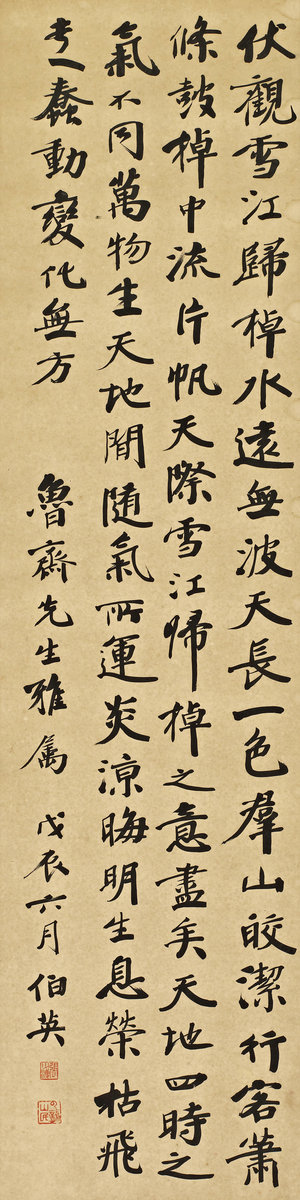 伏觀雪江歸棹水遠無波天長一色羣山皎潔行客蕭
條鼓棹中流片帆天際雪江帰棹之意盡矣天地四時之
氣不同萬物生天地間隨氣所運炎涼晦明生息榮枯飛
走蠢動變化無方
魯齋先生雅屬 戊辰六月 伯英